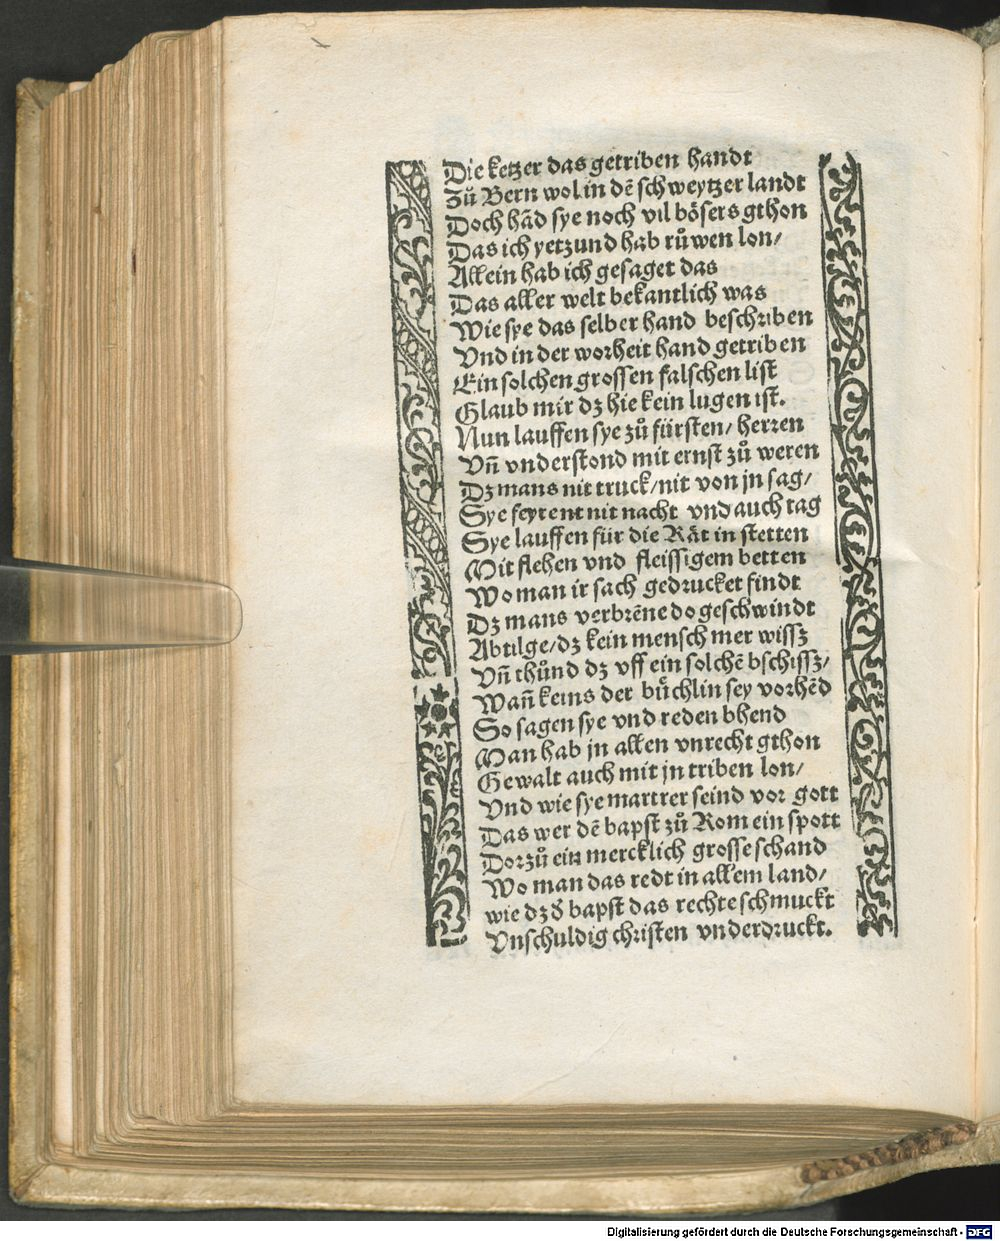 Die ketzer das getriben handt
Zů Bern wol in dẽ schweytzer landt
Doch hãd sye noch vil bösers gthon
Das ich yetzund hab růwen lon/
Allein hab ich gesaget das
Das aller welt bekantlich was
Wie sye das selber hand beschriben
Vnd in der worheit hand getriben
Ein solchen grossen falschen list
Glaub mir dz hie kein lugen ist.
Nun lauffen sye zů fürsten/ herren
Vñ vnderstond mit ernst zů weren
Dz mans nit truck/nit von jn sag/
Sye feyrent nit nacht vnd auch tag
Sye lauffen für die Rät in stetten
Mit flehen vnd fleissigem betten
Wo man ir sach gedrucket findt
Dz mans verbrẽne do geschwindt
Abtilge/dz kein mensch mer wissz
Vñ thůnd dz vff ein solchẽ bschissz/
Wañ keins der bůchlin sey vorhẽd
So sagen sye vnd reden bhend
Man hab jn allen vnrecht gthon
Gewalt auch mit jn triben lon/
Vnd wie sye martrer seind vor gott
Das wer dẽ bapst zů Rom ein spott
Dorzů ein mercklich grosse schand
Wo man das redt in allem land/
wie dz d̕ bapst das rechte schmuckt
Vnschuldig christen vnderdruckt.
Digitalisierung gefördert durch die Deutsche Forschungsgemeinschaft - DFG